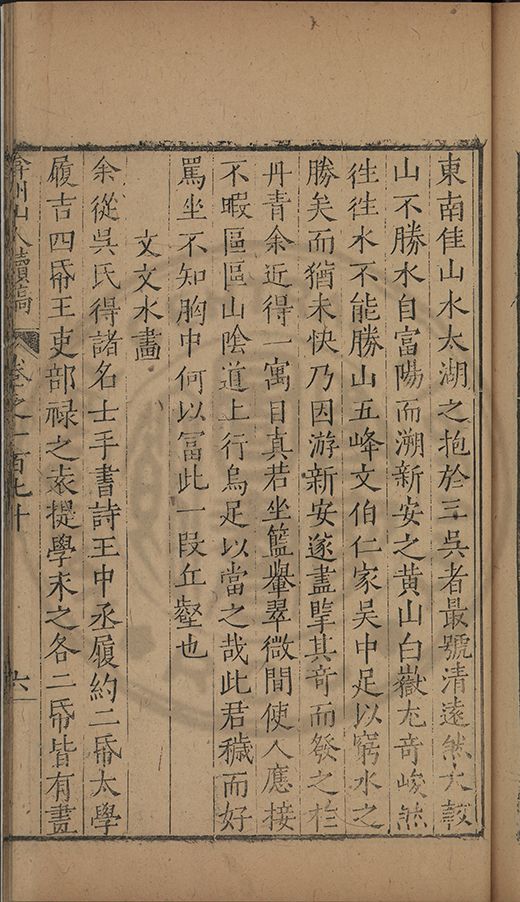 東南佳山水太湖之抱於三吳者最號清遠然大較
山不勝水自富陽而溯新安之黃山白嶽尢奇峻然
徃徃水不能勝山五峰文伯仁家吳中足以窮水之
勝矣而猶未快乃因游新安遂盡擥其奇而發之於
丹青余近得一寓目真若坐籃轝翠微間使人應接
不暇區區山陰道上行烏足以當之哉此君穢而好
罵坐不知胸中何以富此一段丘壑也
文文水畫
余從吳氏得諸名士手書詩王中丞履約二帋太學
履吉四帋王吏部禄之袁提學永之各二帋皆有畫
弇州山人續稿 卷之一百七十 六